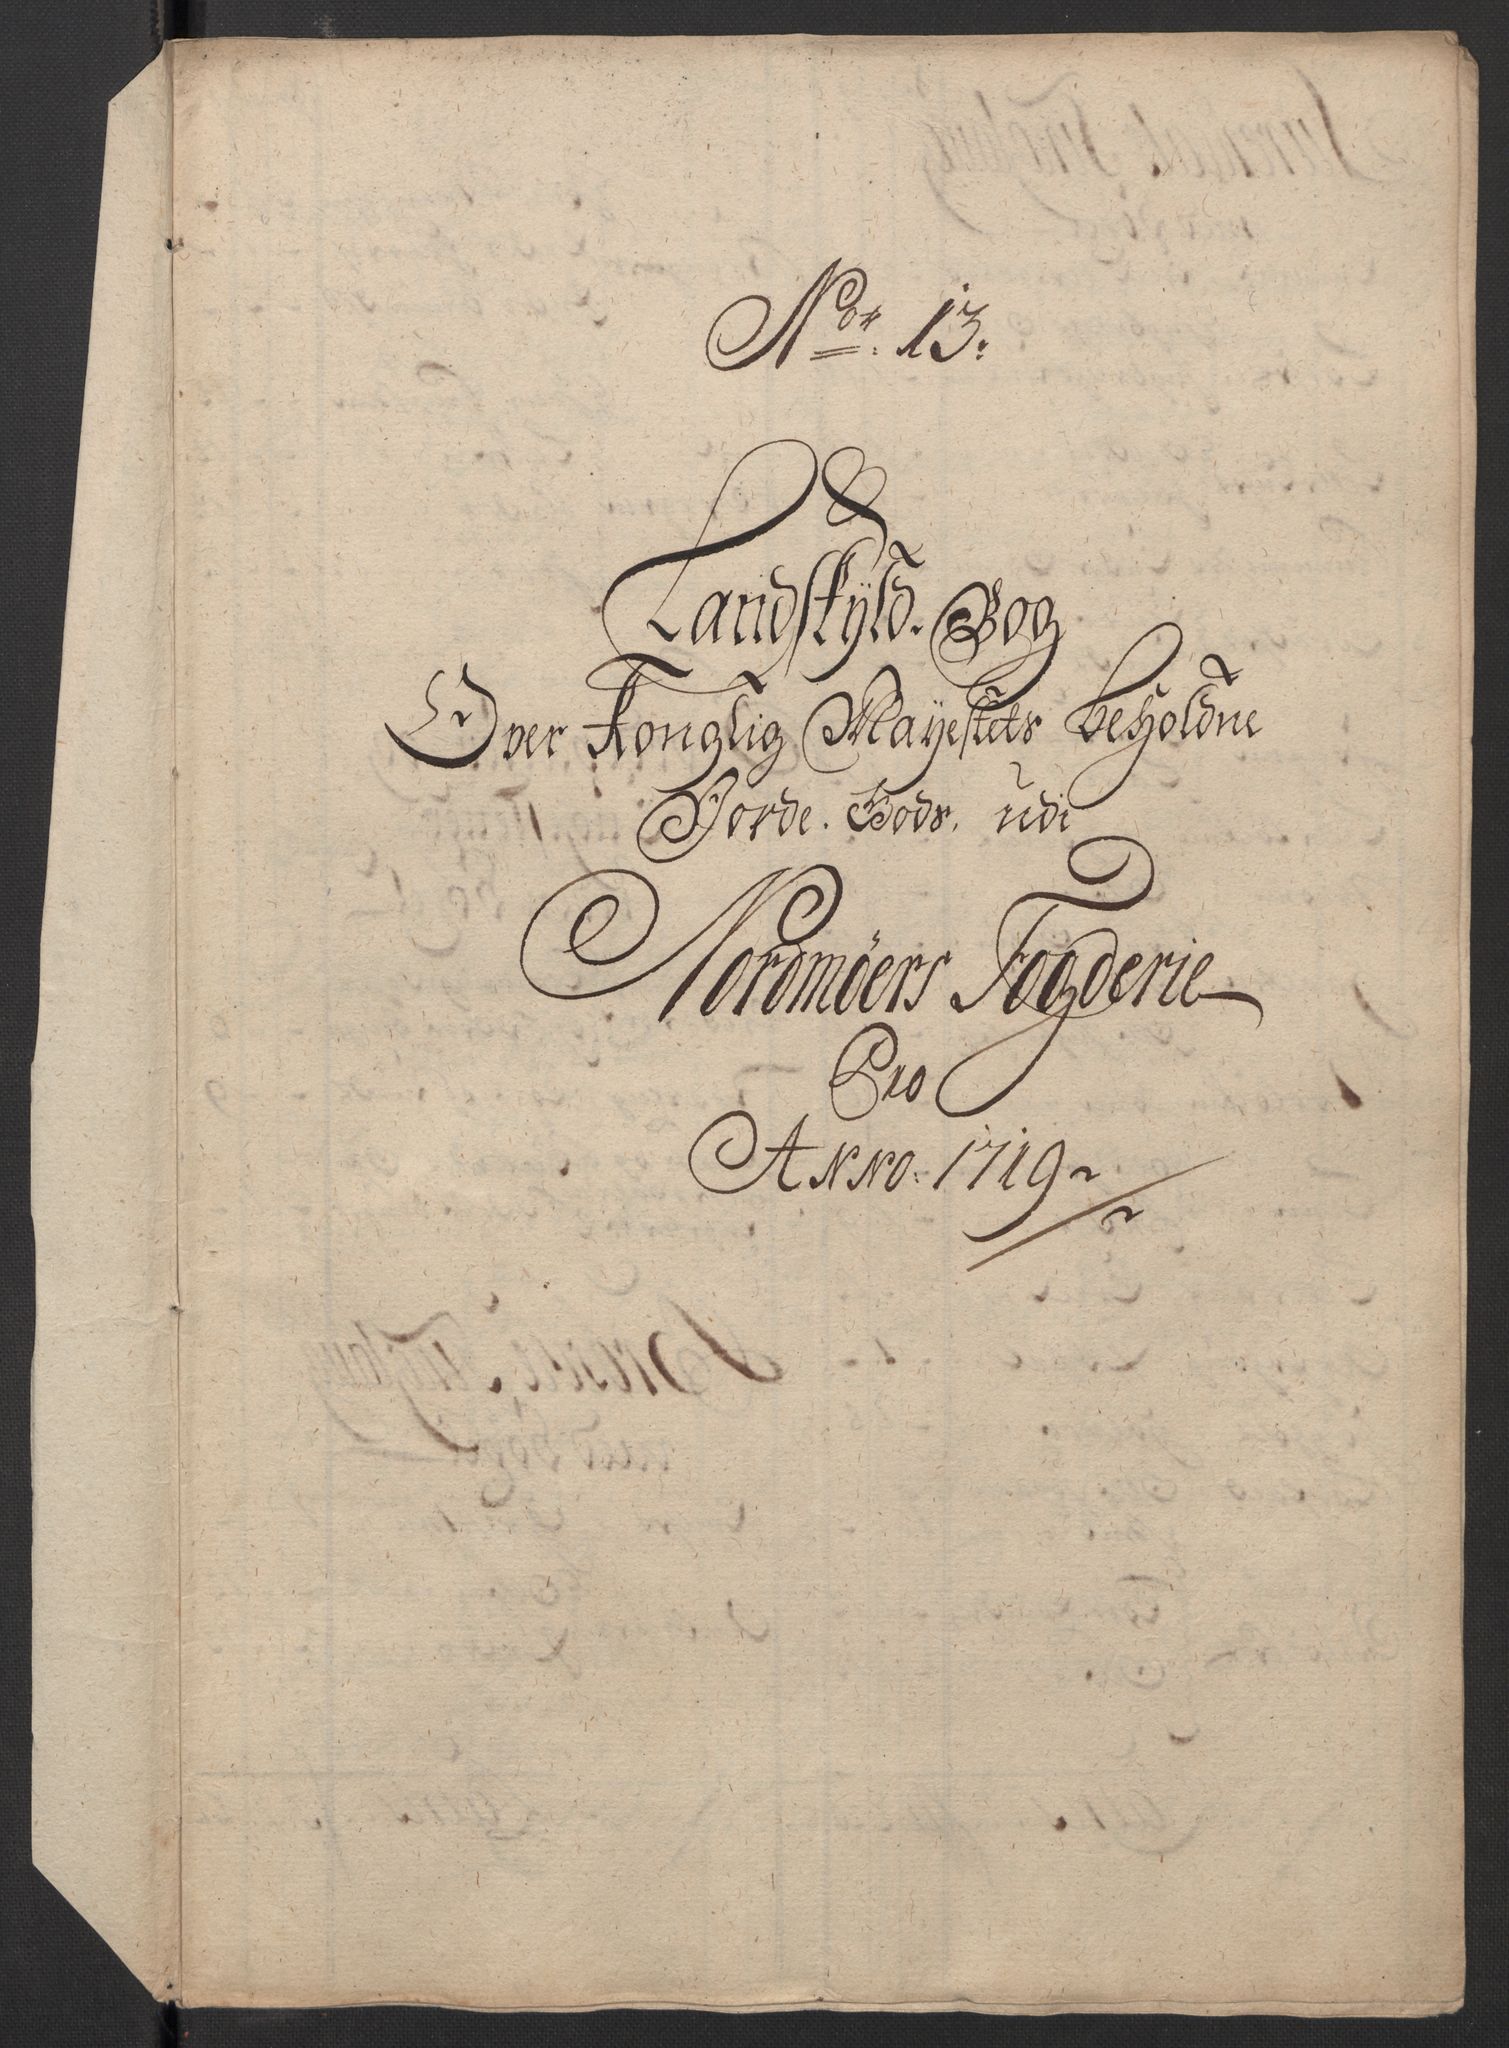 No: 13:
Landskyld. Bog
Over Konglig Mayestets beholdne
Jorde. Gods. udi
Nordmöers Fogderie
Pro
Anno: 1719